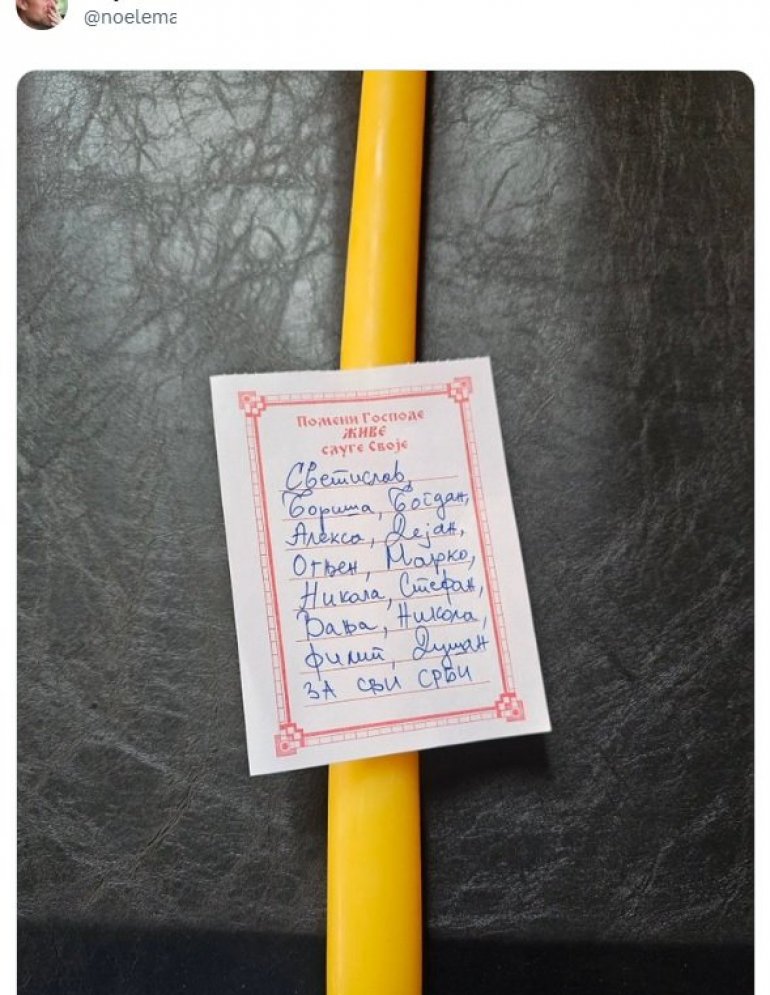 @noelema
Помени Господе
ЖИВЕ
слуге Своје
Светислав,
Бориша, Богдан,
Алекса, Дејан,
Огњен, Марко,
Никола, Стефан,
Вања, Никола,
Филип, Душан
ЗА СВИ СРБИ